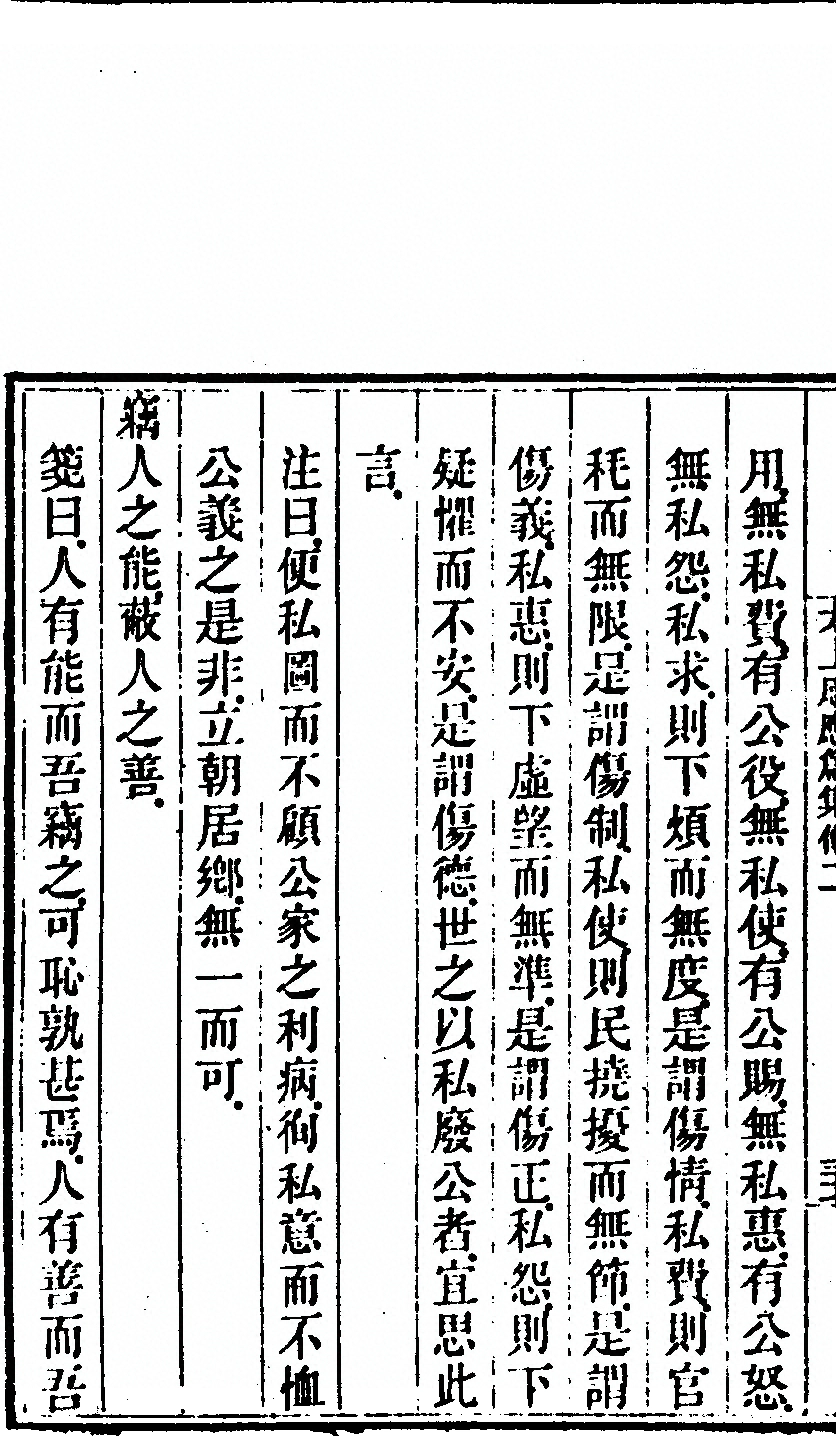 用、無私費、有公役、無私使、有公賜、無私惠、有公怒、
無私怨、私求、則下煩而無度、是謂傷情、私費、則官
耗而無限、是謂傷制、私使、則民撓擾而無節、是謂
傷義、私惠、則下虛望而無準、是謂傷正、私怨則下
疑懼而不安、是謂傷德、世之以私廢公者、宜思此
言、
注曰、便私圖而不顧公家之利病、徇私意而不恤
公義之是非、立朝居鄉、無一而可、
竊人之能、蔽人之善、
箋曰、人有能而吾竊之、可恥孰甚焉、人有善而吾